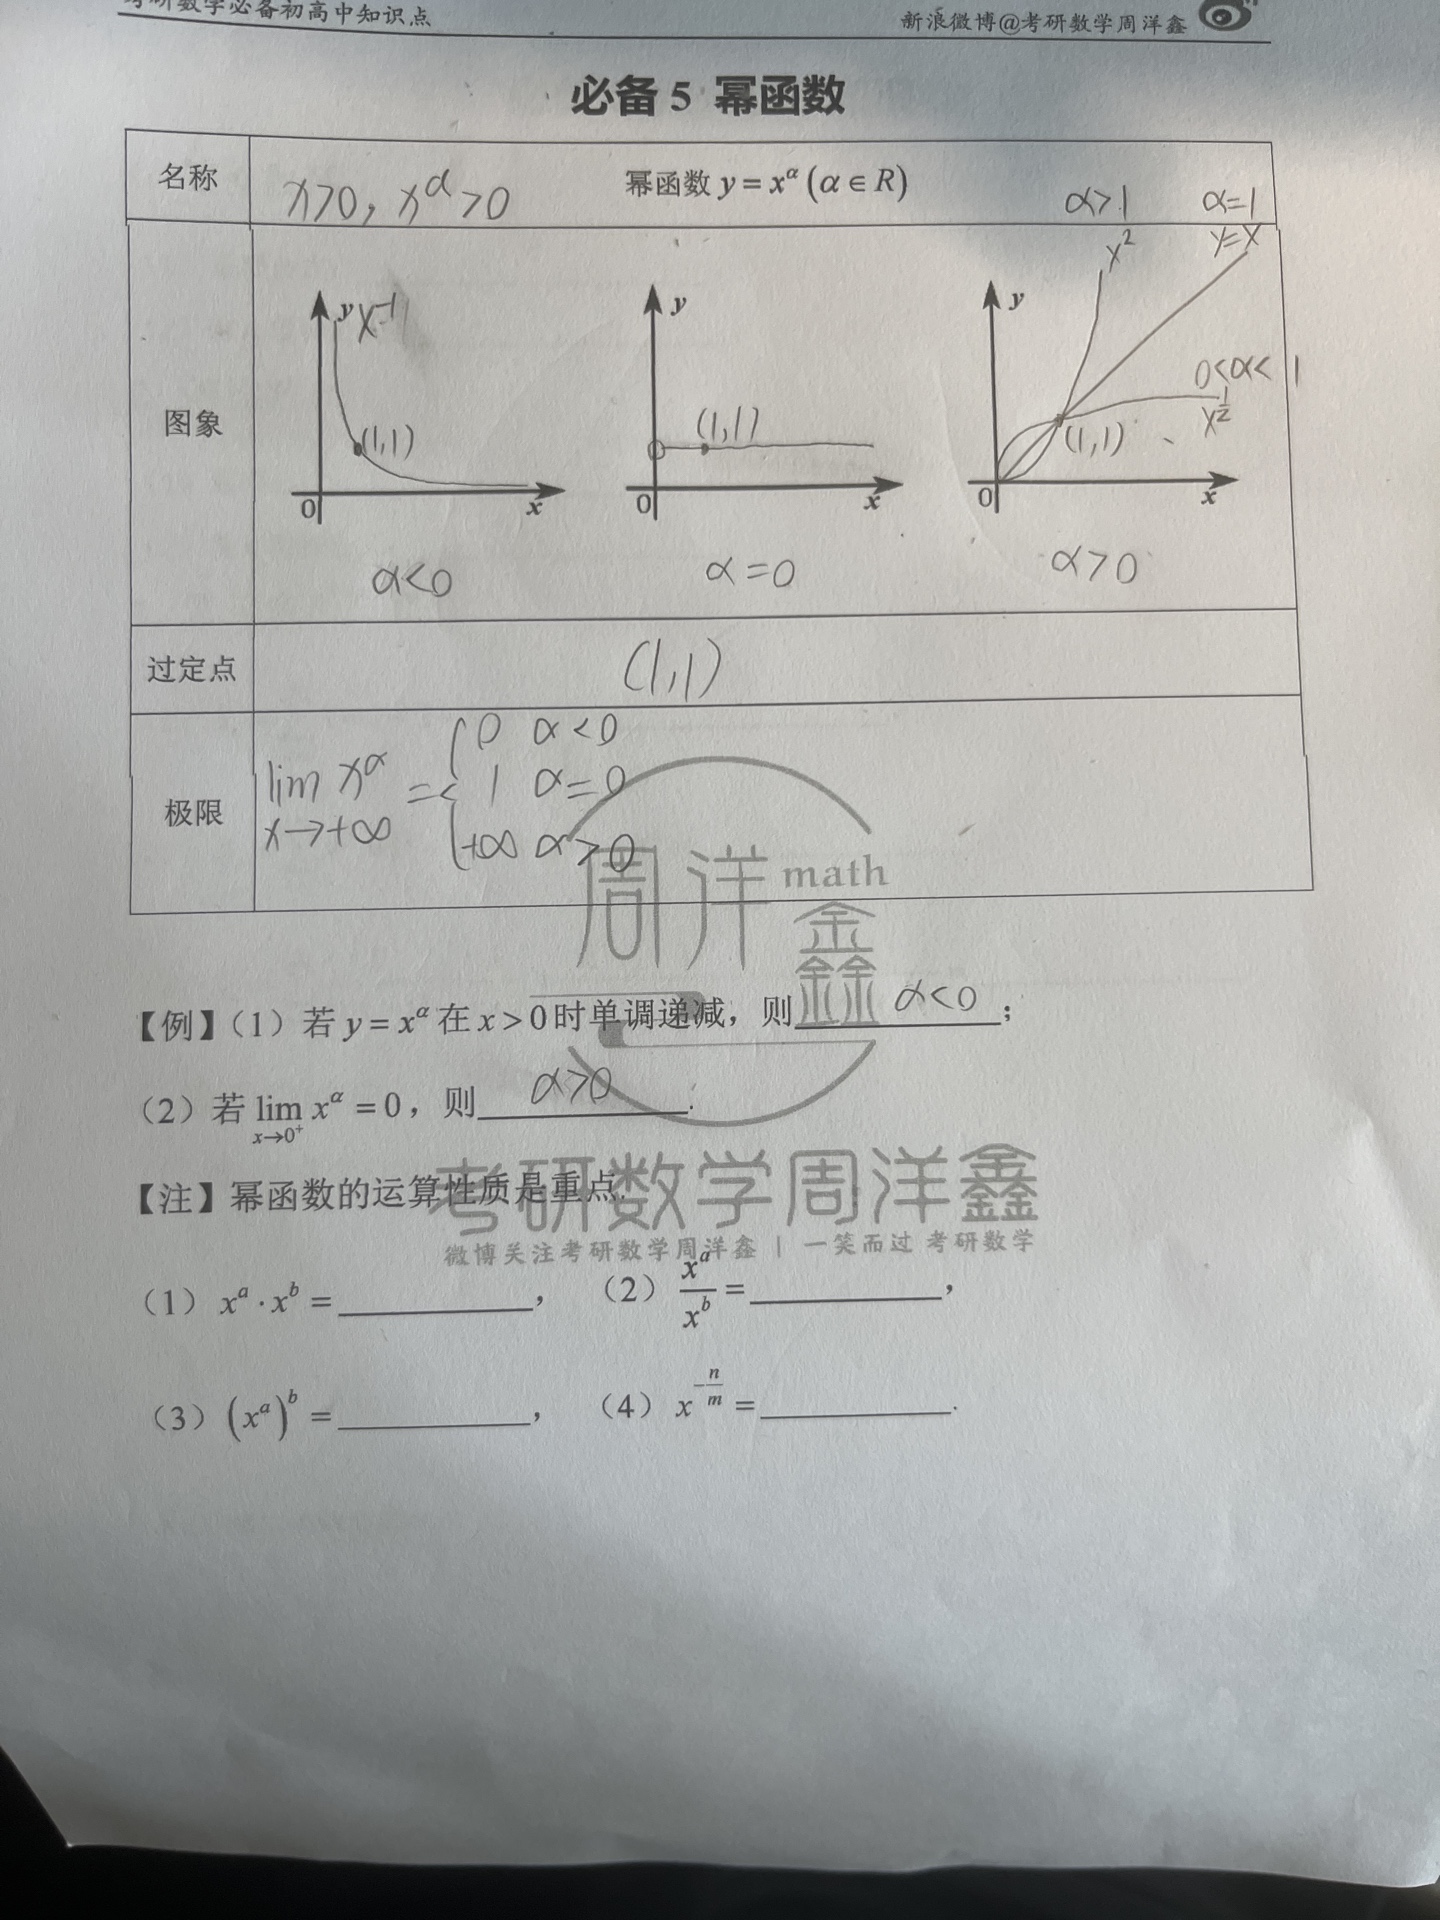 考研数学必备初高中知识点
新浪微博@考研数学周洋鑫
必备 5 幂函数
名称
x>0, x^α>0
幂函数 y = x^α (α ∈ R)
α>1 α=1
图象
y x^-1
(1,1)
0 x
α<0
y
(1,1)
0 x
α=0
y
x² y=x
0<α<1
x^½
(1,1)
0 x
α>0
过定点
(1,1)
极限
lim x^α = { 0 α<0
x→+∞ 1 α=0
+∞ α>0
周洋鑫 math
【例】（1）若 y = x^α 在 x > 0 时单调递减，则 α<0 ；
（2）若 lim x^α = 0，则 α>0 .
x→0⁺
考研数学周洋鑫
【注】幂函数的运算性质是重点.
微博关注考研数学周洋鑫 | 一笑而过 考研数学
（1）x^a · x^b = ________， （2）x^a / x^b = ________，
（3）(x^a)^b = ________， （4）x^(-n/m) = ________.